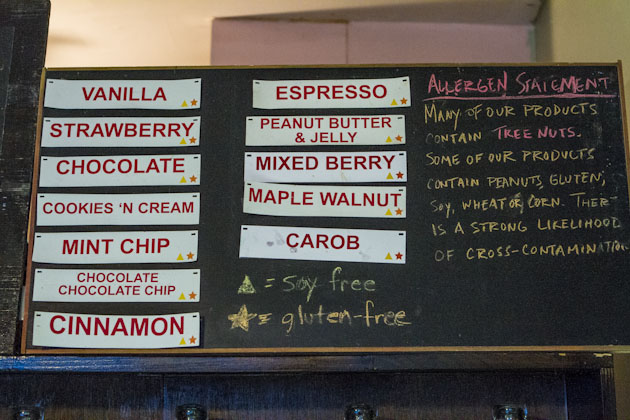 VANILLA
STRAWBERRY
CHOCOLATE
COOKIES 'N CREAM
MINT CHIP
CHOCOLATE
CHOCOLATE CHIP
CINNAMON
ESPRESSO
PEANUT BUTTER
& JELLY
MIXED BERRY
MAPLE WALNUT
CAROB
= soy free
= gluten-free
ALLERGEN STATEMENT
MANY OF OUR PRODUCTS
CONTAIN TREE NUTS.
SOME OF OUR PRODUCTS
CONTAIN PEANUTS, GLUTEN,
SOY, WHEAT OR CORN. THERE
IS A STRONG LIKELIHOOD
OF CROSS-CONTAMINATION